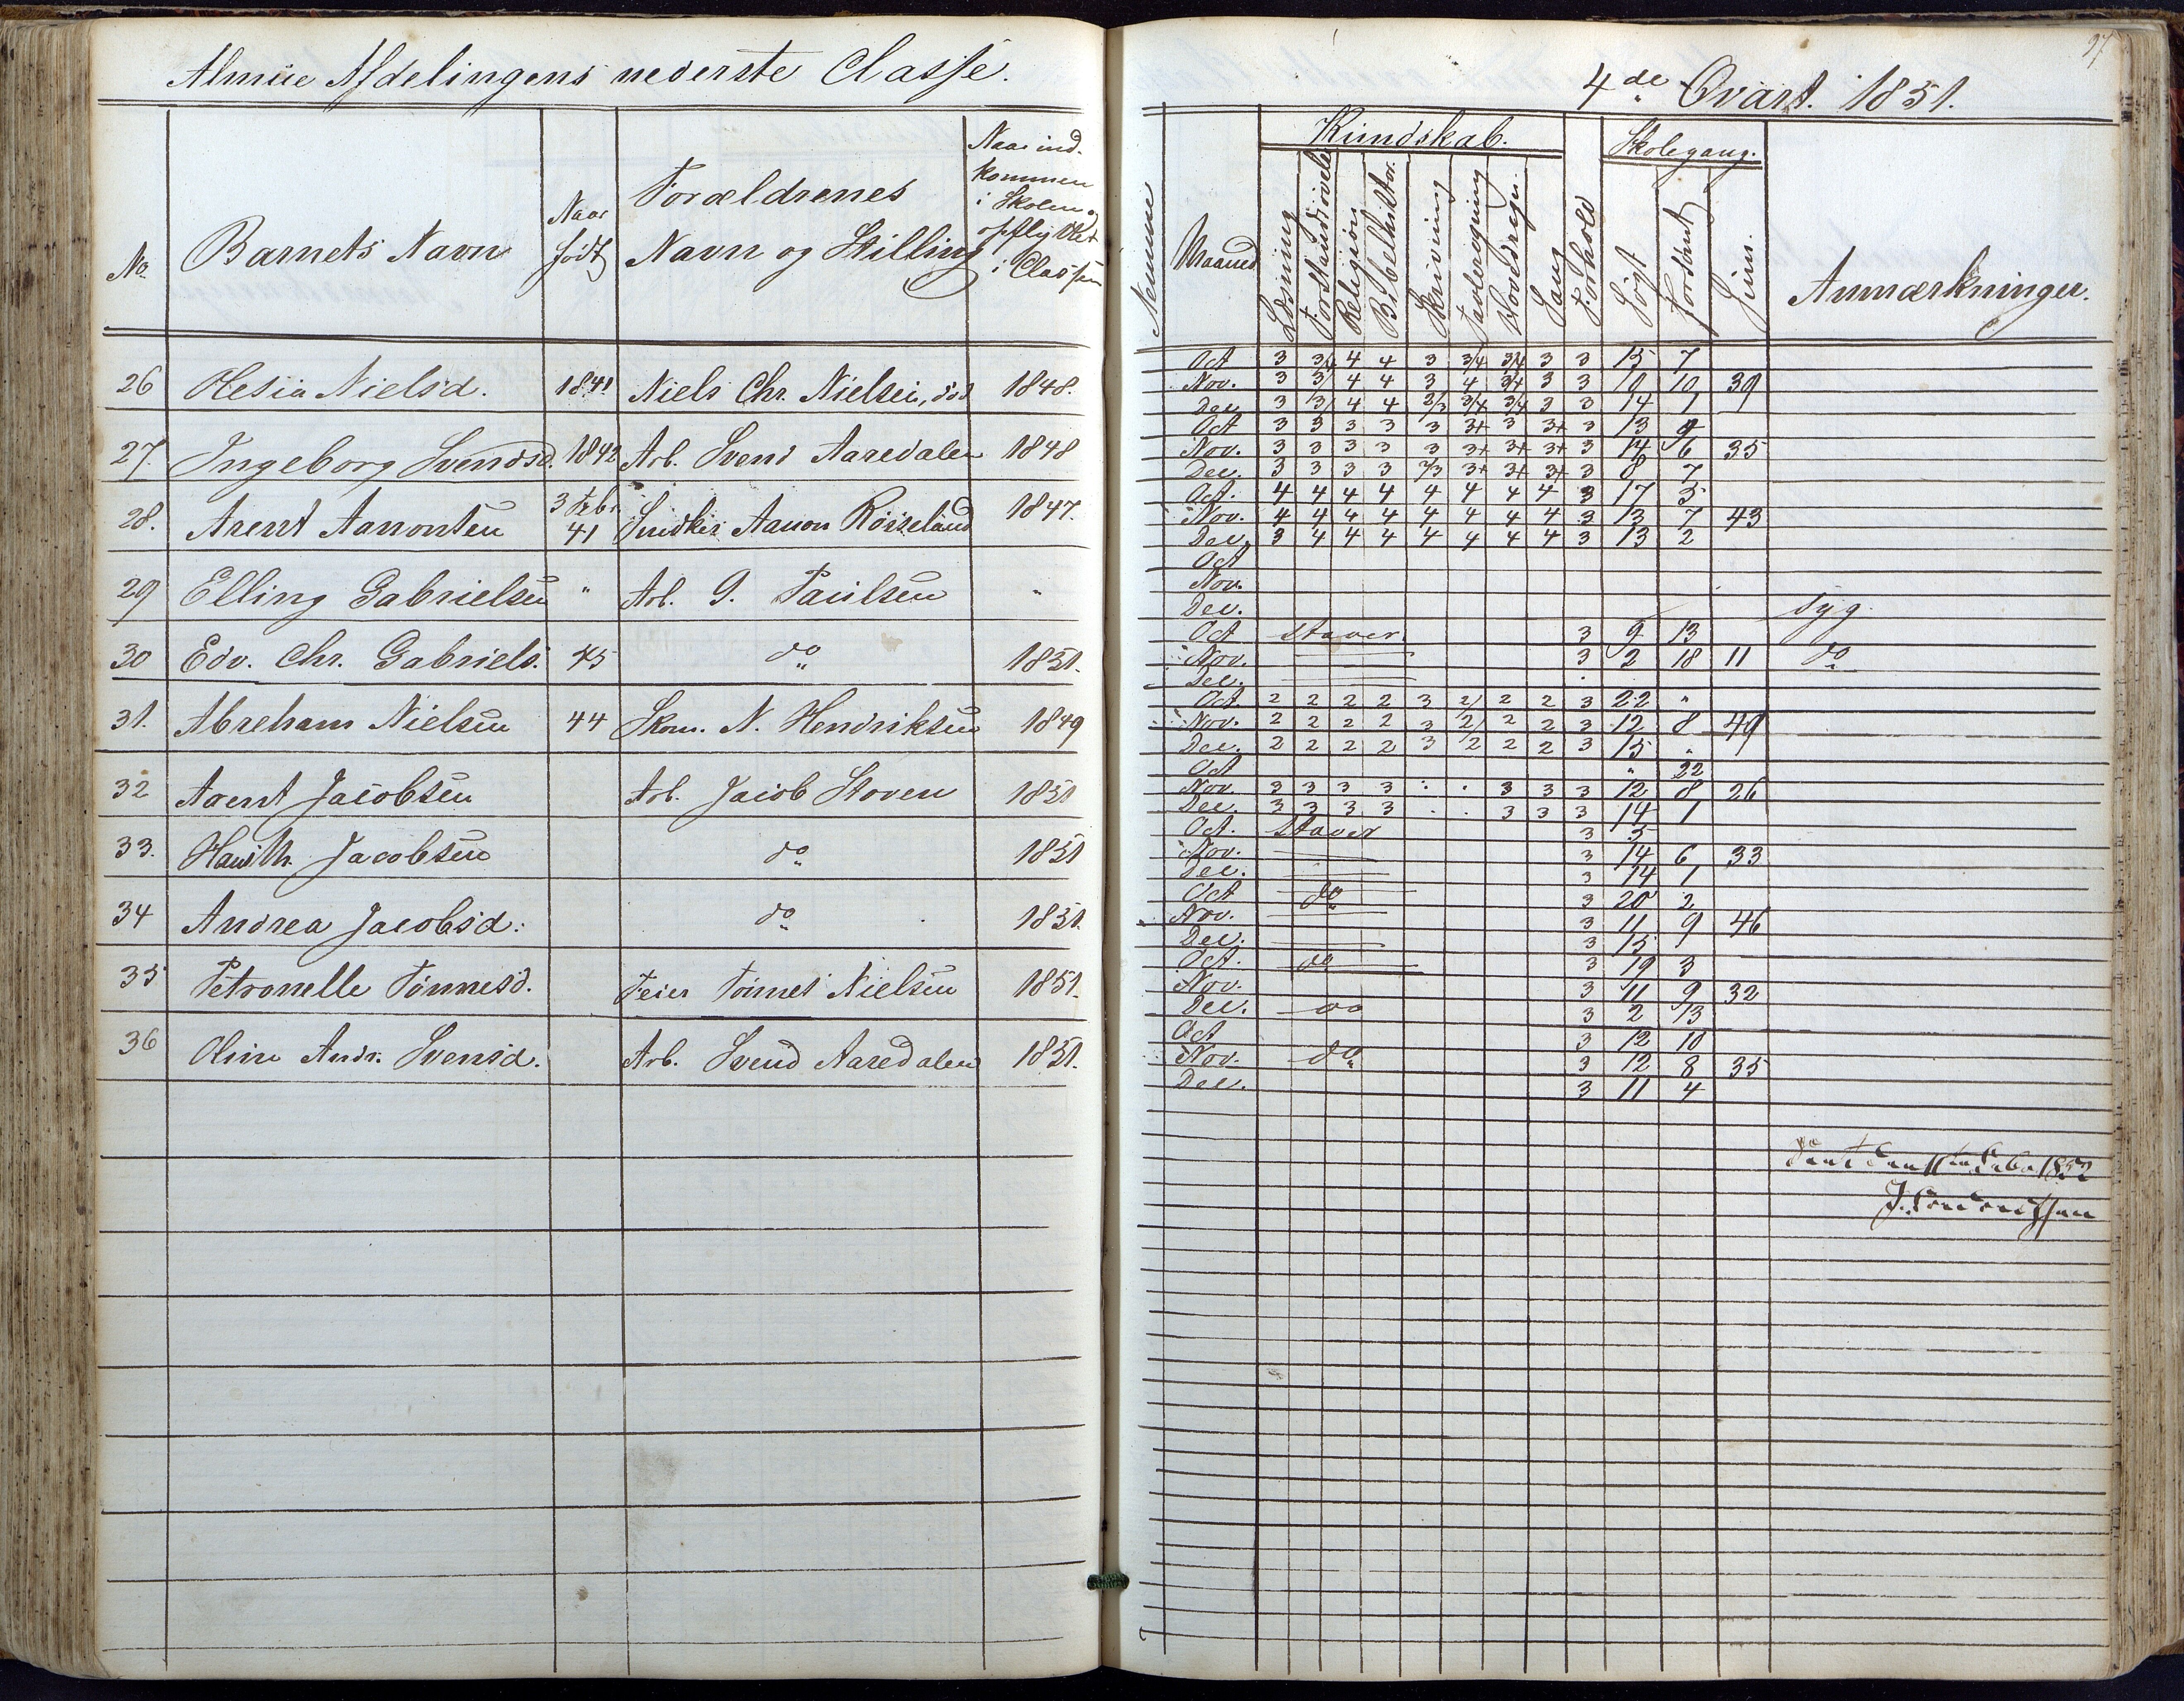 Almue Afdelingens nederste Classe.
No. | Barnets Navn | Naar født | Forældrenes Navn og Stilling | Naar indkommen i Skolen og opflyttet i Classen
26 | Olesia Nielsd. | 1841 | Niels Chr. Nielsen, død | 1848.
27. | Ingeborg Svendsd. | 1842 | Arb. Svend Aaredalen | 1848
28. | Arent Aanonsen | 3 Febr 41 | Aanon Rosseland | 1847.
29 | Elling Gabrielsen | " | Arb. G. Paulsen | "
30 | Edv. Chr. Gabriels. | 45 | do | 1851.
31. | Abreham Nielsen | 44 | Skom. N. Hendriksen | 1849
32 | Arent Jacobsen | | Arb. Jacob Stoven | 1850
33. | Jacobsen | | do | 1851
34 | Andrea Jacobsd. | | do | 1851.
35 | Petronelle Tønnesd. | | Feier Tønnes Nielsen | 1851.
36 | Oline Andr. Svensd. | | Arb. Svend Aaredalen | 1851.
97
4de Qvart. 1851.
Maaned | Kundskab. | Læsning | Forstandsøvelse | Religion | Bibelhistor. | Skrivning | Tavleregning | Hovedregn. | Sang | Forhold | Skolegang. | Søgt | Forsømt | Anmærkninger.
Oct 3 3/4 4 4 3 3/4 3/4 3 3 15 7
Nov. 3 3/ 4 4 3 4 3/4 3 3 10 10 39
Dec 3 3/ 4 4 2/3 3/4 3/4 3 3 14 1
Oct 3 3 3 3 3 3+ 3 3+ 3 13 9
Nov. 3 3 3 3 3 3+ 3+ 3+ 3 14 6 35
Dec. 3 3 3 3 2/3 3+ 3+ 3+ 3 8 7
Oct. 4 4 4 4 4 4 4 4 3 17 5
Nov. 4 4 4 4 4 4 4 4 3 13 7 43
Dec. 3 4 4 4 4 4 4 4 3 13 2
Oct
Nov.
Dec. syg.
Oct staver. 3 9 13
Nov. 3 2 18 11 do
Dec.
Oct 2 2 2 2 3 2/ 2 2 3 22 "
Nov. 2 2 2 2 3 2/ 2 2 3 12 8 49
Dec. 2 2 2 2 3 2 2 2 3 15 "
Oct " 22
Nov. 3 3 3 3 . . 3 3 3 12 8 26
Dec. 3 3 3 3 . . 3 3 3 14 1
Oct. staver 3 5
Nov. 3 14 6 33
Dec. 3 14 1
Oct do 3 20 2
Nov. 3 11 9 46
Dec. 3 15
Oct. do 3 19 3
Nov. 3 11 9 32
Dec. do 3 2 13
Oct 3 12 10
Nov. do 3 12 8 35
Dec. 3 11 4
1852